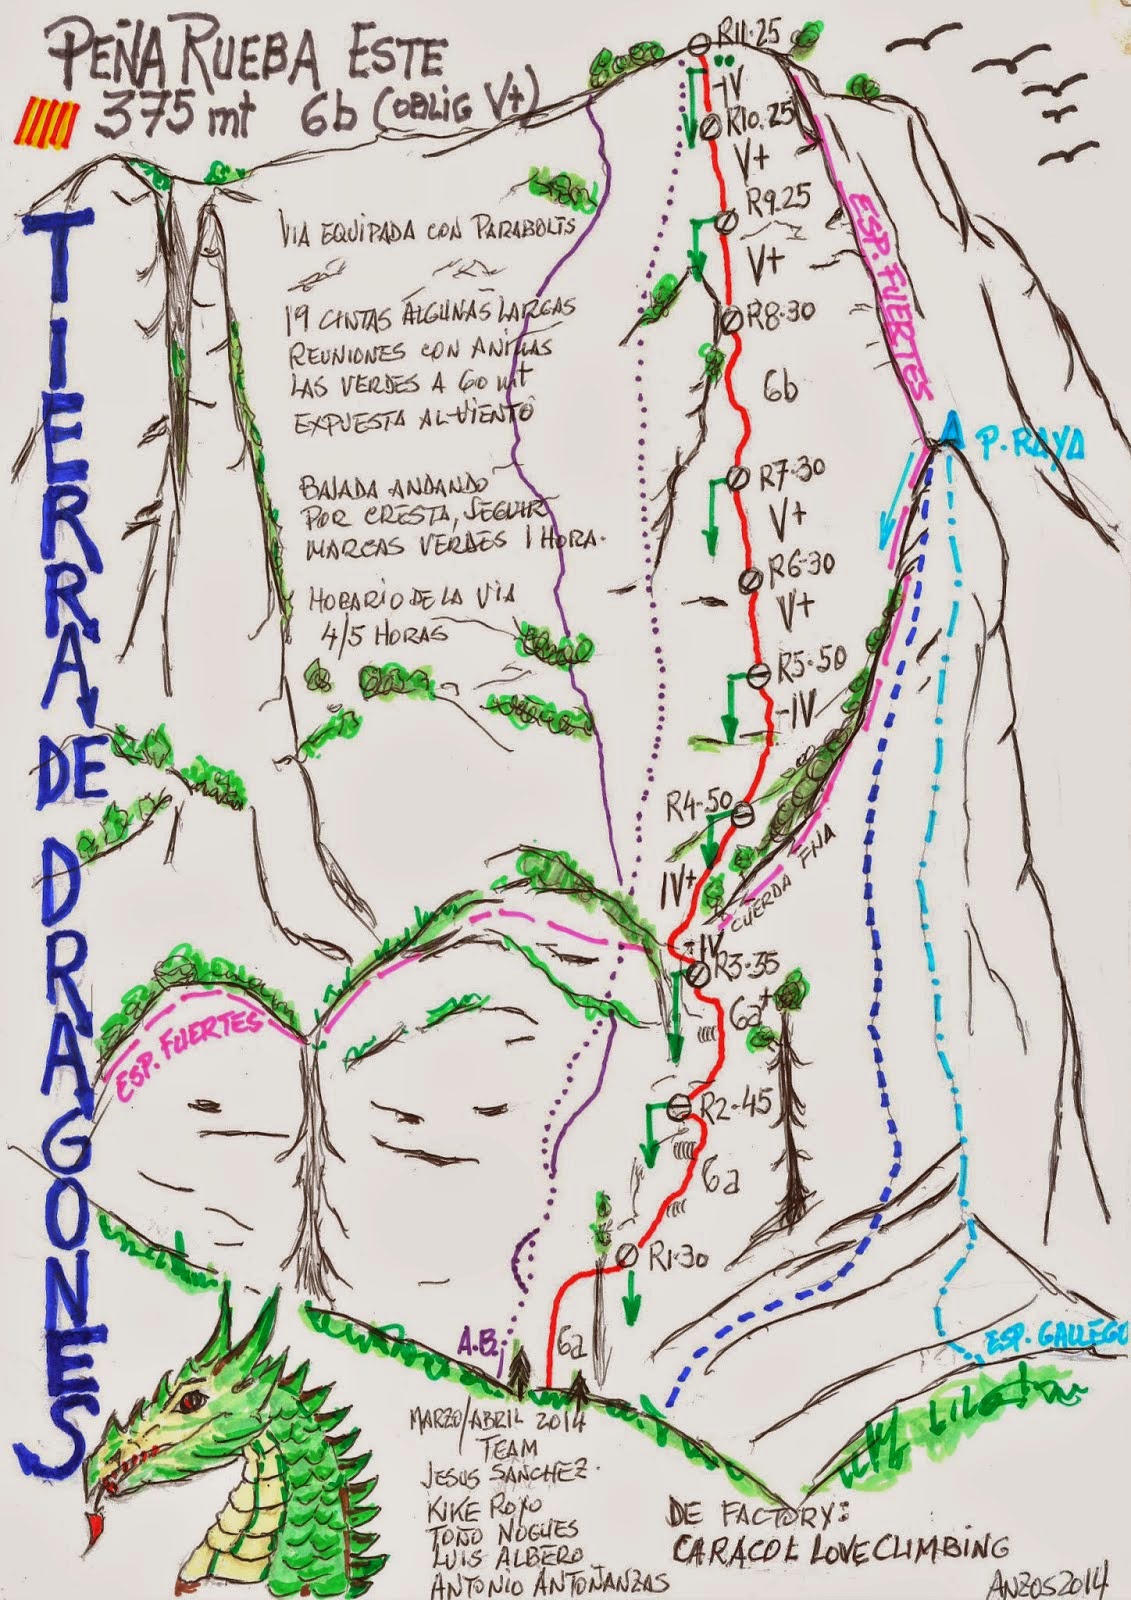 PEÑA RUEBA ESTE
375 mt 6b (OBLIG V+)
TIERRA DE DRAGONES
VIA EQUIPADA CON PARABOLTS
19 CINTAS ALGUNAS LARGAS
REUNIONES CON ANILLAS
LAS VERDES A 60 mt
EXPUESTA AL VIENTO
BAJADA ANDANDO
POR CRESTA, SEGUIR
MARCAS VERDES 1 HORA.
HORARIO DE LA VIA
4/5 HORAS
R11.25
-IV
R10.25
V+
R9.25
V+
R8.30
6b
R7.30
V+
R6.30
V+
R5.50
-IV
R4-50
IV+
-IV
R3.35
6a+
R2.45
6a
R1.30
6a
ESP. FUERTES
P. RAYA
CUERDA FIJA
ESP. FUERTES
A.B.
ESP. GALLEGO
MARZO/ABRIL 2014
TEAM
JESUS SANCHEZ.
KIKE ROYO
TOÑO NOGUES
LUIS ALBERO
ANTONIO ANTOÑANZAS
DE FACTORY:
CARACOL LOVE CLIMBING
ANZOS 2014